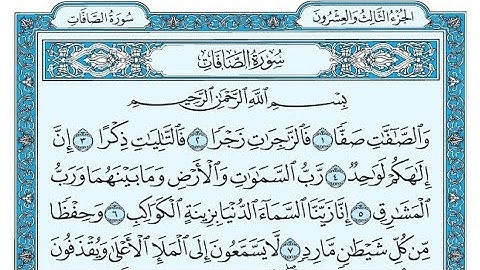 الجزء الثالث والعشرون
سورة الصافات
سُورَةُ الصَّافَّات
بِسْمِ ٱللَّهِ ٱلرَّحْمَٰنِ ٱلرَّحِيمِ
وَٱلصَّٰٓفَّٰتِ صَفًّا ١ فَٱلزَّٰجِرَٰتِ زَجْرًا ٢ فَٱلتَّٰلِيَٰتِ ذِكْرًا ٣ إِنَّ
إِلَٰهَكُمْ لَوَٰحِدٌ ٤ رَّبُّ ٱلسَّمَٰوَٰتِ وَٱلْأَرْضِ وَمَا بَيْنَهُمَا وَرَبُّ
ٱلْمَشَٰرِقِ ٥ إِنَّا زَيَّنَّا ٱلسَّمَآءَ ٱلدُّنْيَا بِزِينَةٍ ٱلْكَوَاكِبِ ٦ وَحِفْظًا
مِّن كُلِّ شَيْطَٰنٍ مَّارِدٍ ٧ لَّا يَسَّمَّعُونَ إِلَى ٱلْمَلَإِ ٱلْأَعْلَىٰ وَيُقْذَفُونَ